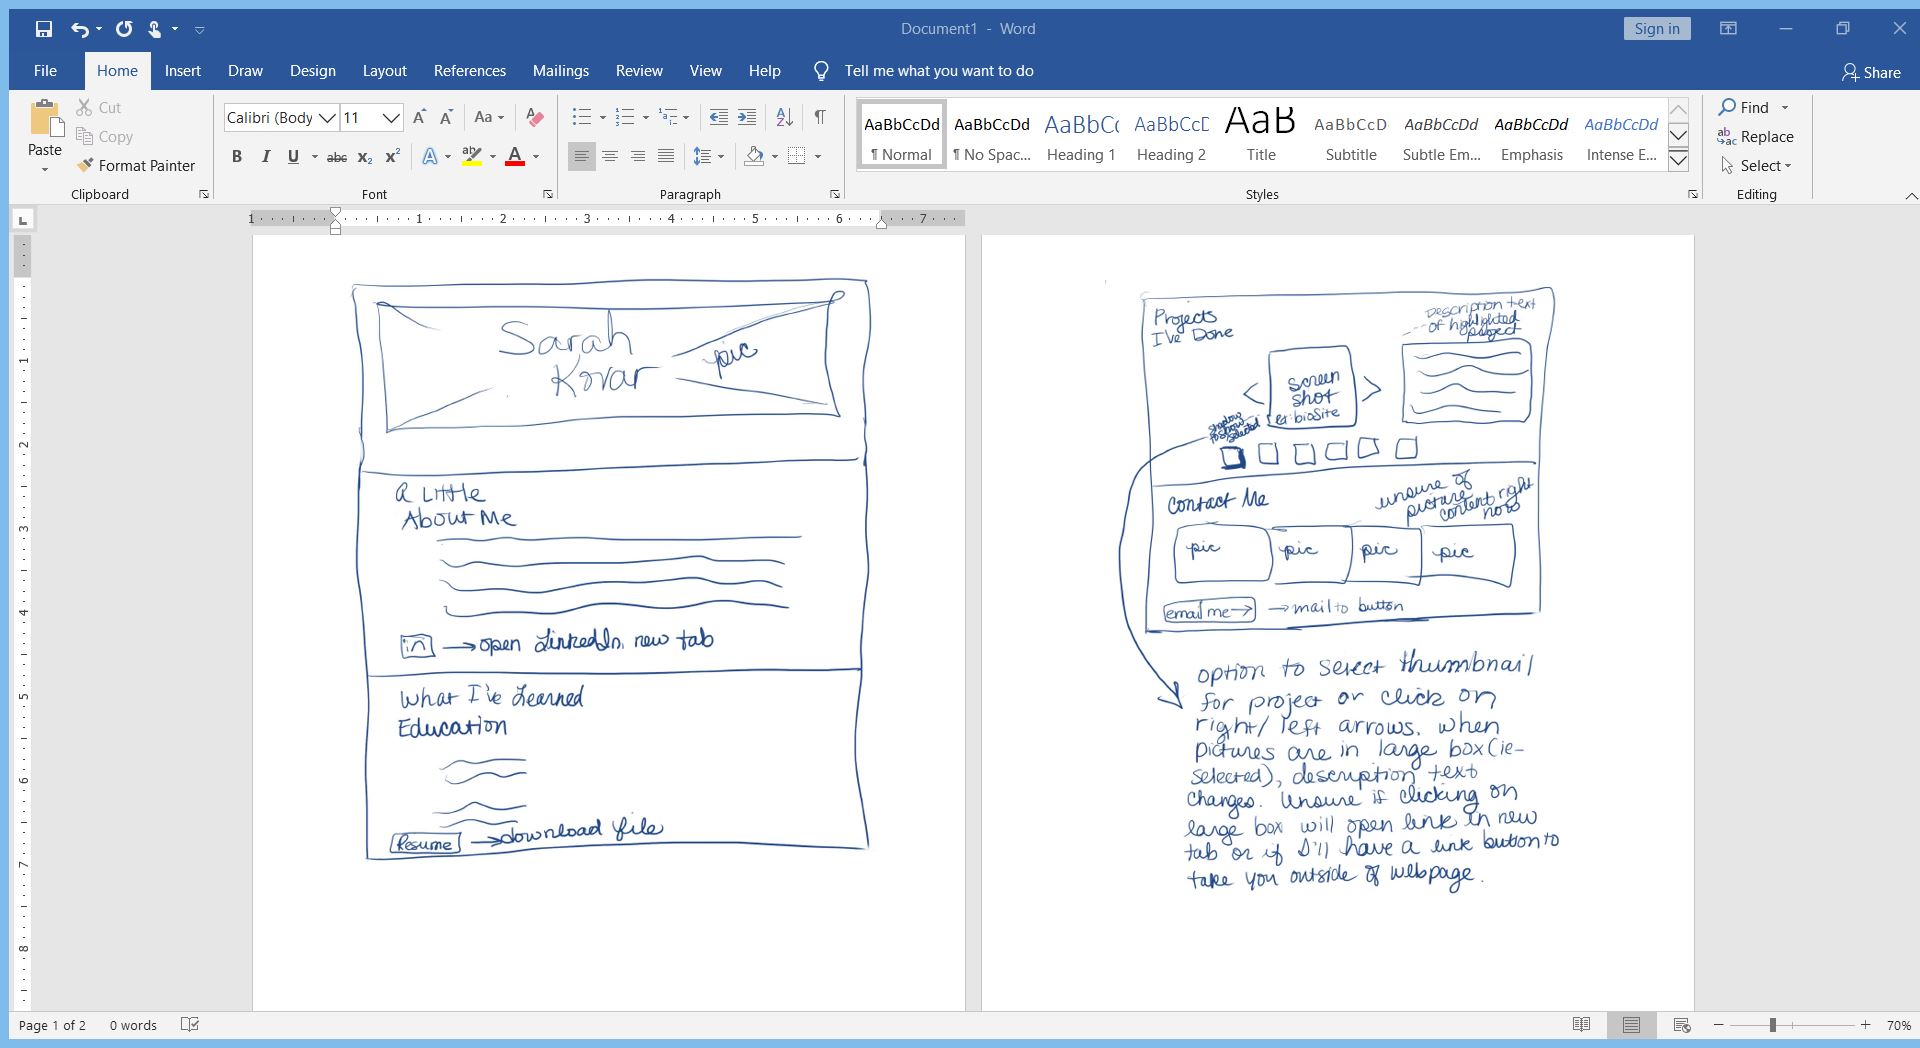 Document1 - Word
Sign in
File Home Insert Draw Design Layout References Mailings Review View Help Tell me what you want to do
Share
Paste
Cut
Copy
Format Painter
Clipboard
Calibri (Body 11
Font
Paragraph
AaBbCcDd AaBbCcDd AaBbCc AaBbCcD AaB AaBbCcD AaBbCcDd AaBbCcDd AaBbCcDd
¶ Normal ¶ No Spac... Heading 1 Heading 2 Title Subtitle Subtle Em... Emphasis Intense E...
Styles
Find
Replace
Select
Editing
1 1 2 3 4 5 6 7
1
2
3
4
5
6
7
8
Sarah
Kovar
pic
A Little
About Me
in → open LinkedIn, new tab
What I've Learned
Education
Resume → download file
Projects
I've Done
Description text
of highlighted
project
< screen >
shot
bioSite
shadow
to show
selected
Contact Me
unsure of
picture
content right
now
pic pic pic pic
email me → → mail to button
option to select thumbnail
for project or click on
right/left arrows. When
pictures are in large box (ie-
selected), description text
changes. Unsure if clicking on
large box will open link in new
tab or if I'll have a link button to
take you outside of webpage.
Page 1 of 2 0 words
70%